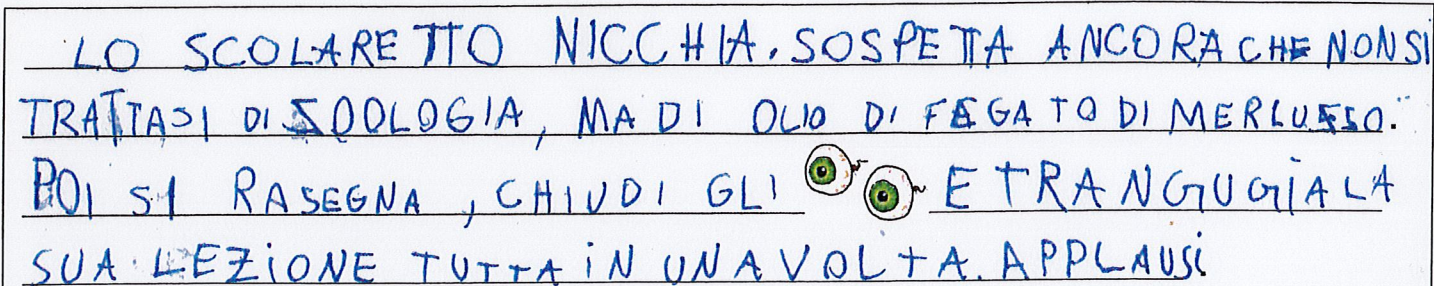 LO SCOLARETTO NICCHIA. SOSPETTA ANCORA CHE NON SI
TRATTASI DI SOOLOGIA, MA DI OLIO DI FEGATO DI MERLUSSO.
POI SI RASEGNA, CHIUDI GLI E TRANGUGIA LA
SUA LEZIONE TUTTA IN UNA VOLTA. APPLAUSI